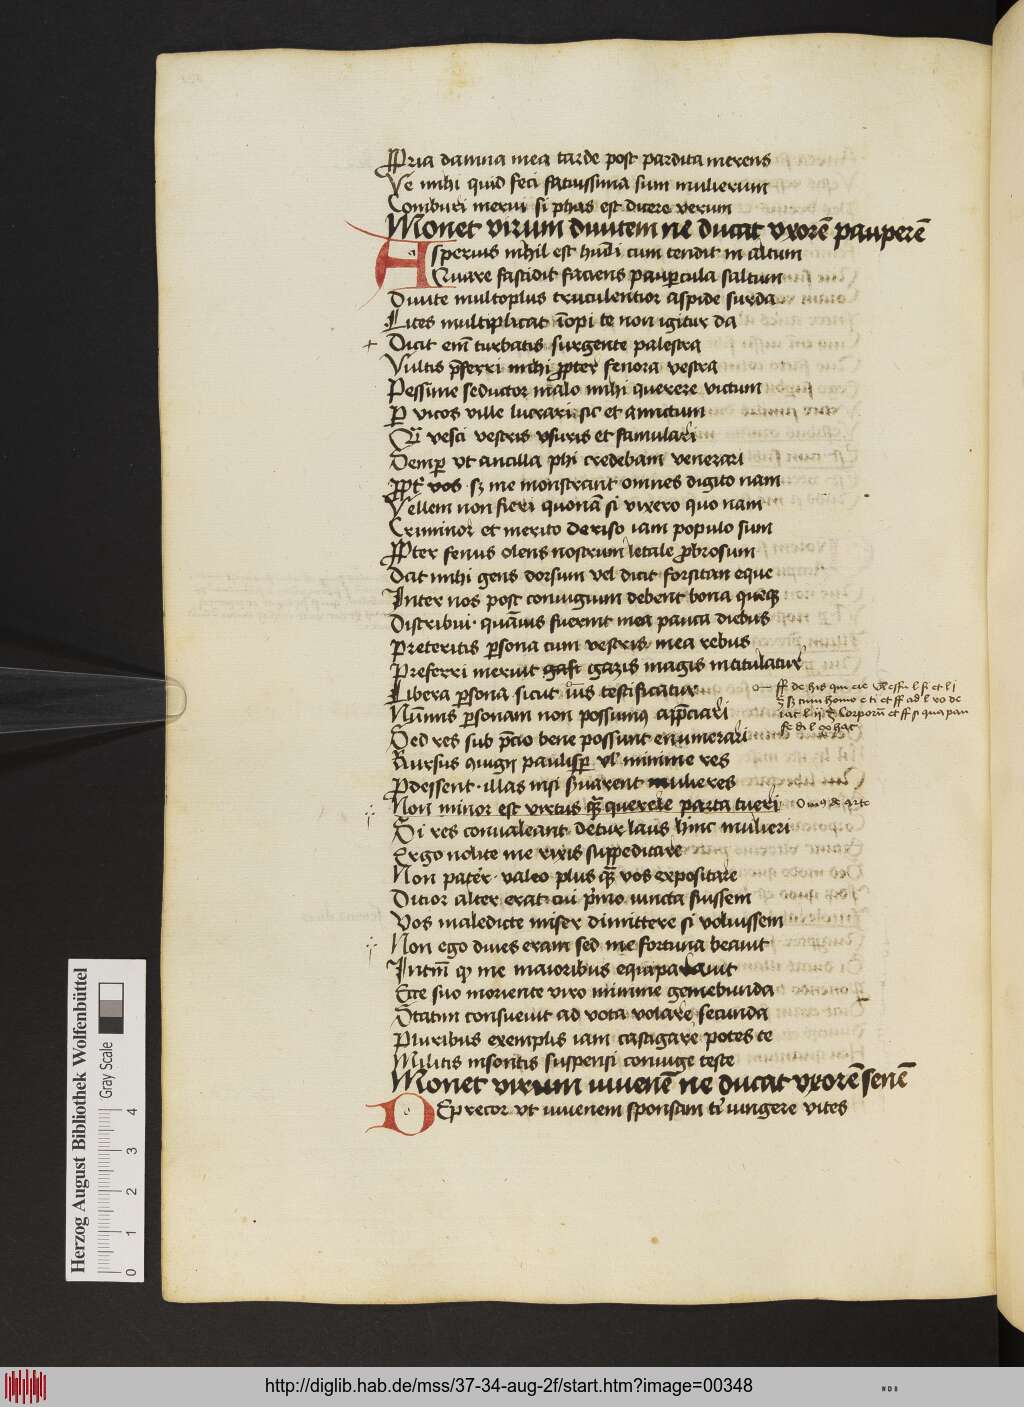 Ppria damna mea tarde post pardita merens
Ve mihi quid feci fatuissima sum mulierum
Comburi merui si phas est dicere verum
Monet virum diuitem ne ducat vxorē pauperē
Asperius nihil est hūili cum tendit in altum
Quare fastidit faciens paupcula saltum
Diuite multoplus truculentior aspide surda
Lites multiplicat īopi te non igitur da
Dicit em̄ turbatis surgente palestra
Vultis p̄ferri mihi ppter fenora vestra
Pessime seductor malo mihi querere victum
P vicos ville lucrari sic et amictum
Qꝫ vesci vestris vsuris et famulari
Semp vt ancilla phi credebam venerari
Ppt vos sꝫ me monstrant omnes digito nam
Vellem non fieri quonā si vixero quo nam
Criminor et merito deriso iam populo sum
Ppter fenus olens nostrum letale pbrosum
Dat mihi gens dorsum vel dicit forsitan eque
Inter nos post coniugium debent bona queqꝫ
Distribui quāuis fuerint mea pauca diebus
Preteritis psona cum vestris mea rebus
Preferri meruit gazis magis intitulatur
Libera psona sicut ius testificatur
ff de his qui
Nūmis psonam non possumꝰ app̄ciari
Sed res sub p̄cio bene possunt enumerari
Rursus paulisp vl minime res
Pdessent illas nisi seruarent mulieres
Non minor est virtus qꝫ querere parta tueri
Si res conualeant detur laus hinc mulieri
Ergo nolite me rixis suppeditare
Non pater valeo plus qꝫ vos expositare
Ditior alter erat cui pimo iuncta fuissem
Vos maledicte miser dimittere si voluissem
Non ego diues eram sed me fortuna beauit
Intm̄ qꝫ me maioribus equiparauit
Ecce suo moriente viro minime gemebunda
Statim consueuit ad vota volare secunda
Pluribus exemplis iam castigare potes te
Militis insontis suspensi coniuge teste
Monet virum iuuenē ne ducat vxorē senē
Deprecor vt iuuenem sponsam ti iungere vites
Herzog August Bibliothek Wolfenbüttel
Gray Scale
0 1 2 3 4
http://diglib.hab.de/mss/37-34-aug-2f/start.htm?image=00348